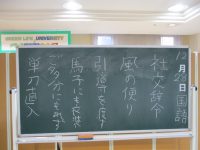 GREEN LIFE UNIVERSITY
12月23日 国語
社交辞令
風の便り
引導を渡す
馬子にも衣装
ご多分にも洩れず
単刀直入